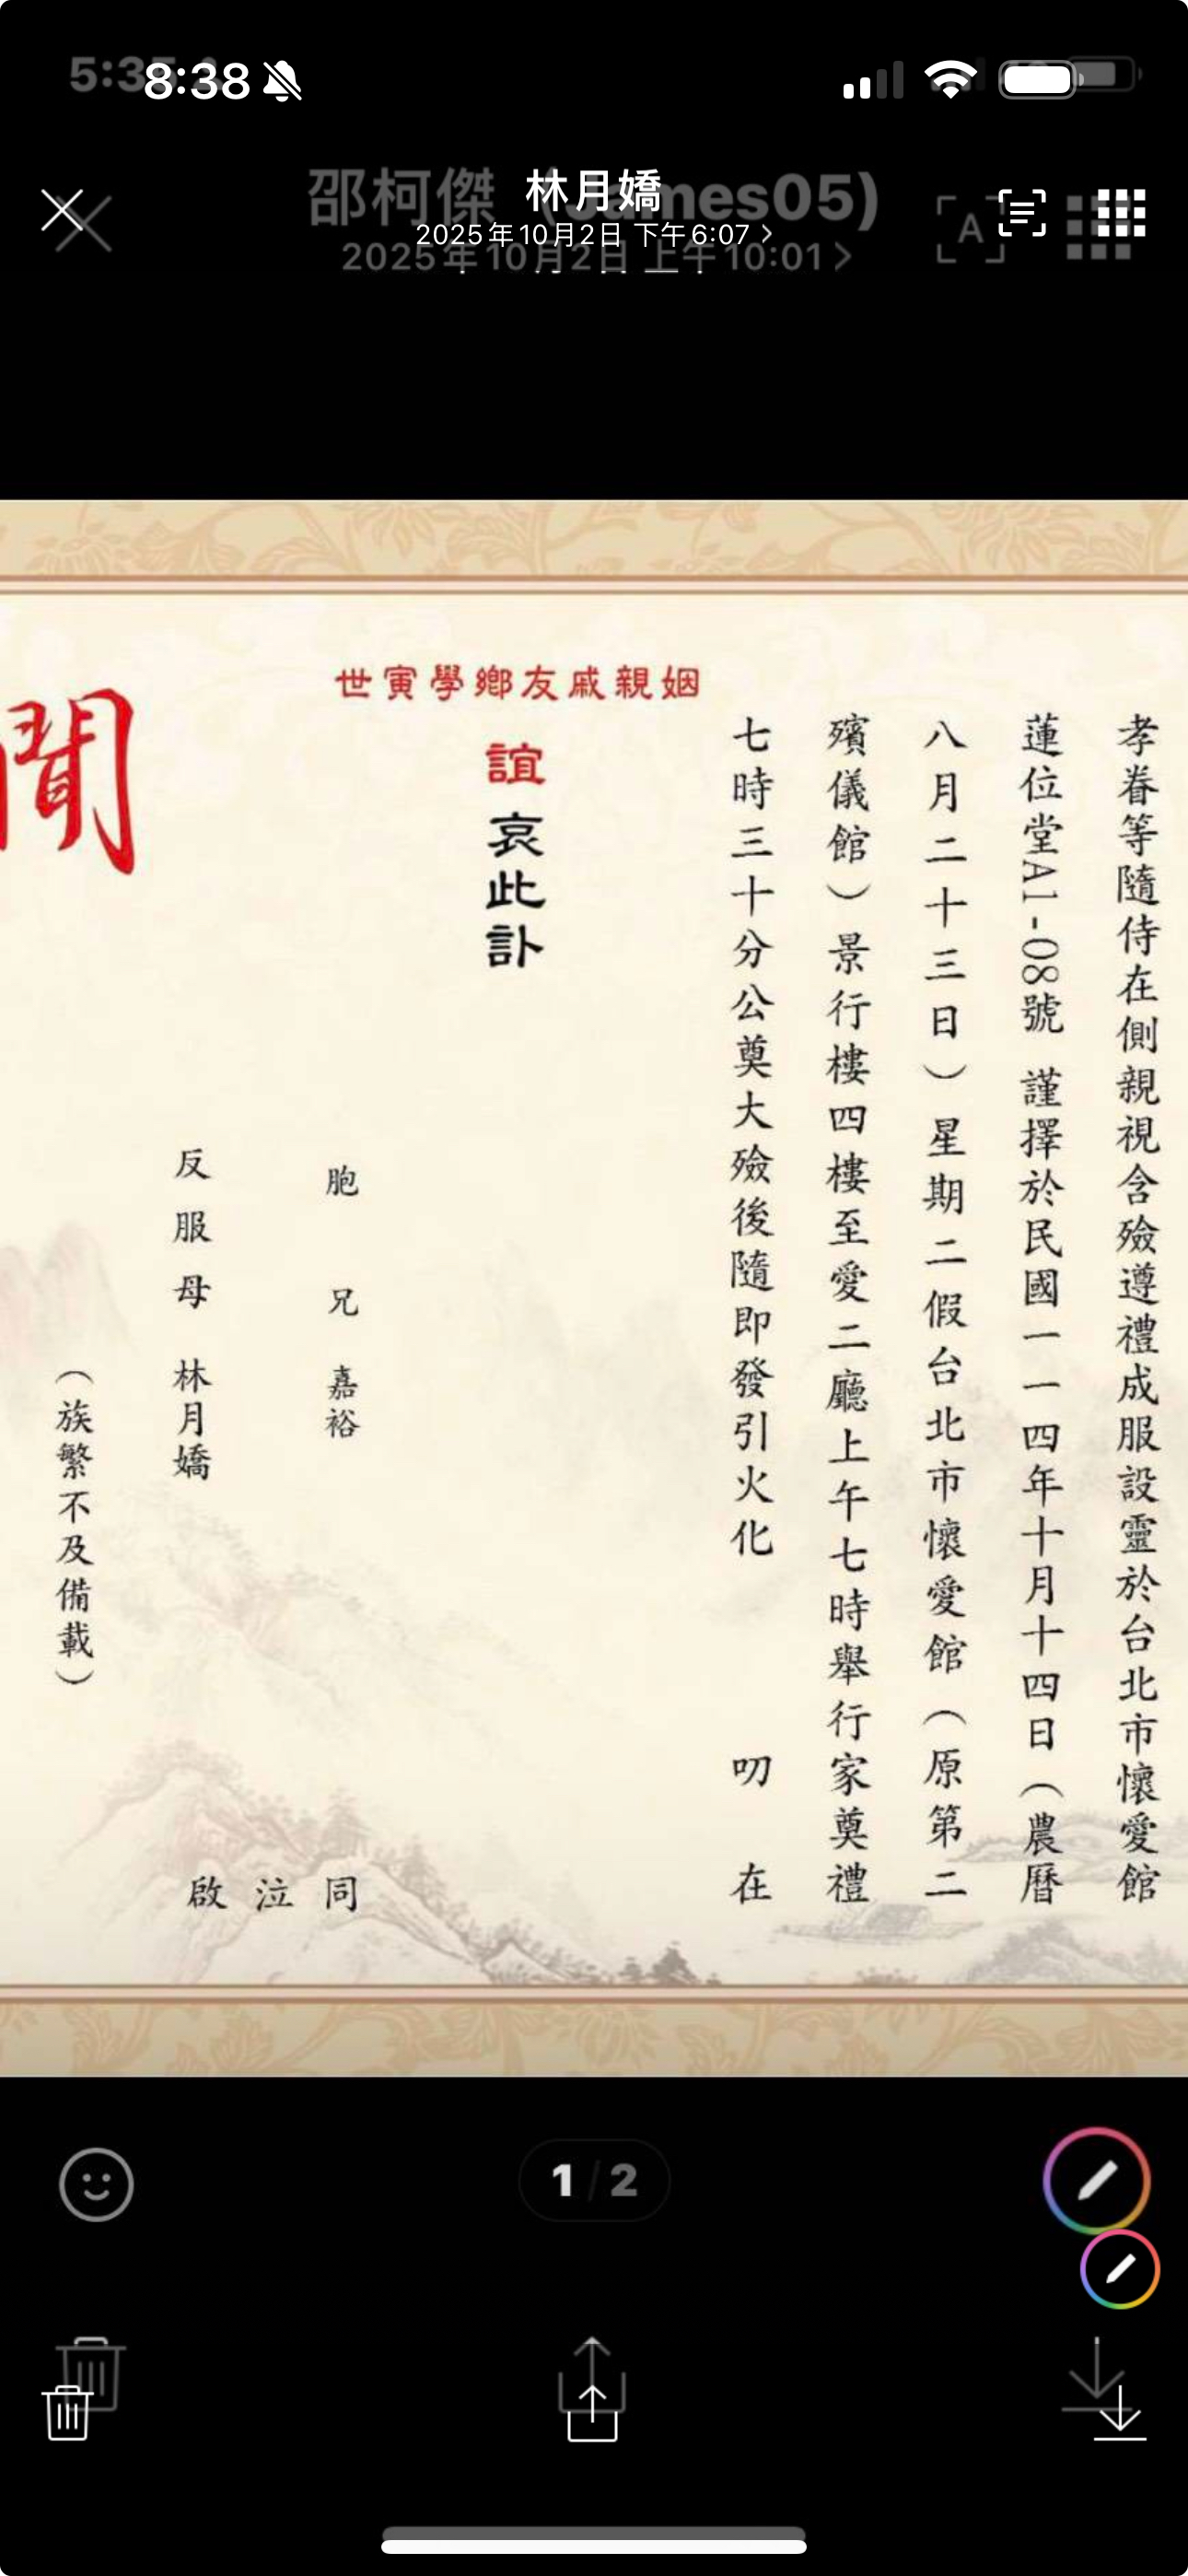 5:35
8:38
邵柯傑 (James05)
林月嬌
2025年10月2日 下午6:07
2025年10月2日 上午10:01
A
孝眷等隨侍在側親視含殮遵禮成服設靈於台北市懷愛館
蓮位堂A1-08號 謹擇於民國一一四年十月十四日（農曆
八月二十三日）星期二假台北市懷愛館（原第二
殯儀館）景行樓四樓至愛二廳上午七時舉行家奠禮
七時三十分公奠大殮後隨即發引火化 叨在
姻親戚友鄉學寅世
誼哀此訃
胞兄 嘉裕
反服母 林月嬌
（族繁不及備載）
同泣啟
聞
1 / 2